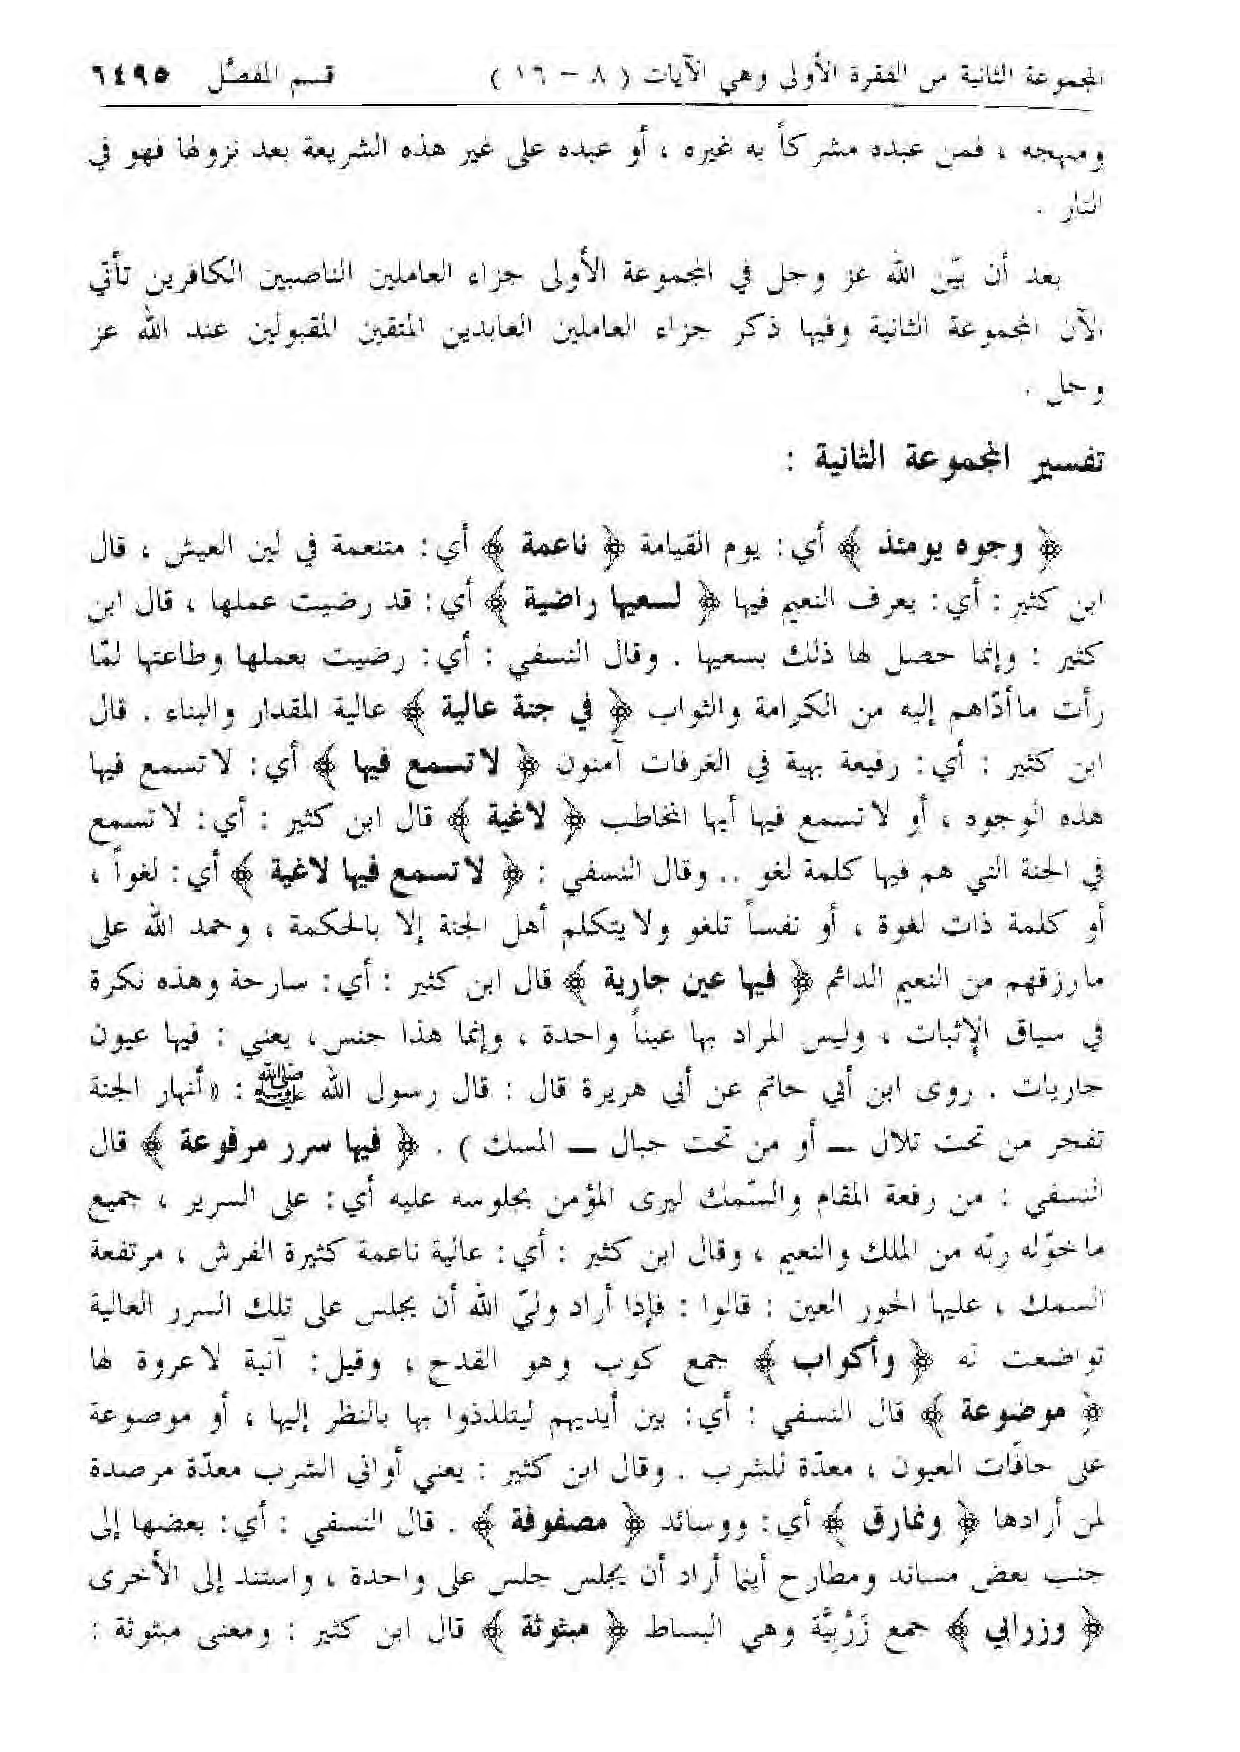 المجموعة الثانية من الفقرة الأولى وهي الآيات ( ٨ – ١٦ ) قسم المفصّل ٦٤٩٥
ومنهجه ، فمن عبده مشركاً به غيره ، أو عبده على غير هذه الشريعة بعد نزولها فهو في
النار .
بعد أن بيّن الله عز وجل في المجموعة الأولى جزاء العاملين الناصبين الكافرين تأتي
الآن المجموعة الثانية وفيها ذكر جزاء العاملين العابدين المتقين المقبولين عند الله عز
وجل .
تفسير المجموعة الثانية :
﴿ وجوه يومئذ ﴾ أي : يوم القيامة ﴿ ناعمة ﴾ أي : متنعمة في لين العيش ، قال
ابن كثير : أي : يعرف النعيم فيها ﴿ لسعيها راضية ﴾ أي : قد رضيت عملها ، قال ابن
كثير : وإنما حصل لها ذلك بسعيها . وقال النسفي : أي : رضيت بعملها وطاعتها لمّا
رأت ما أدّاهم إليه من الكرامة والثواب ﴿ في جنة عالية ﴾ عالية المقدار والبناء . قال
ابن كثير : أي : رفيعة بهية في الغرفات آمنون ﴿ لا تسمع فيها ﴾ أي : لا تسمع فيها
هذه الوجوه ، أو لا تسمع فيها أيها المخاطب ﴿ لاغية ﴾ قال ابن كثير : أي : لا تسمع
في الجنة التي هم فيها كلمة لغو .. وقال النسفي : ﴿ لا تسمع فيها لاغية ﴾ أي : لغواً ،
أو كلمة ذات لغوة ، أو نفساً تلغو ولا يتكلم أهل الجنة إلا بالحكمة ، وحمد الله على
ما رزقهم من النعيم الدائم ﴿ فيها عين جارية ﴾ قال ابن كثير : أي : سارحة وهذه نكرة
في سياق الإثبات ، وليس المراد بها عيناً واحدة ، وإنما هذا جنس ، يعني : فيها عيون
جاريات . روى ابن أبي حاتم عن أبي هريرة قال : قال رسول الله ﷺ : «أنهار الجنة
تفجر من تحت تلال ــ أو من تحت جبال ــ المسك ) . ﴿ فيها سرر مرفوعة ﴾ قال
النسفي : من رفعة المقام والسّمك ليرى المؤمن بجلوسه عليه أي : على السرير ، جميع
ما خوّله ربّه من الملك والنعيم ، وقال ابن كثير : أي : عالية ناعمة كثيرة الفرش ، مرتفعة
السمك ، عليها الحور العين : قالوا : فإذا أراد وليّ الله أن يجلس على تلك السرر العالية
تواضعت له ﴿ وأكواب ﴾ جمع كوب وهو القدح ، وقيل : آنية لا عروة لها
﴿ موضوعة ﴾ قال النسفي : أي : بين أيديهم ليتلذذوا بها بالنظر إليها ، أو موضوعة
على حافّات العيون ، معدّة للشرب . وقال ابن كثير : يعني أواني الشرب معدّة مرصدة
لمن أرادها ﴿ ونمارق ﴾ أي : ووسائد ﴿ مصفوفة ﴾ . قال النسفي : أي : بعضها إلى
جنب بعض مساند ومطارح أينما أراد أن يجلس جلس على واحدة ، واستند إلى الأخرى
﴿ وزرابي ﴾ جمع زَرْبيَّة وهي البساط ﴿ مبثوثة ﴾ قال ابن كثير : ومعنى مبثوثة :